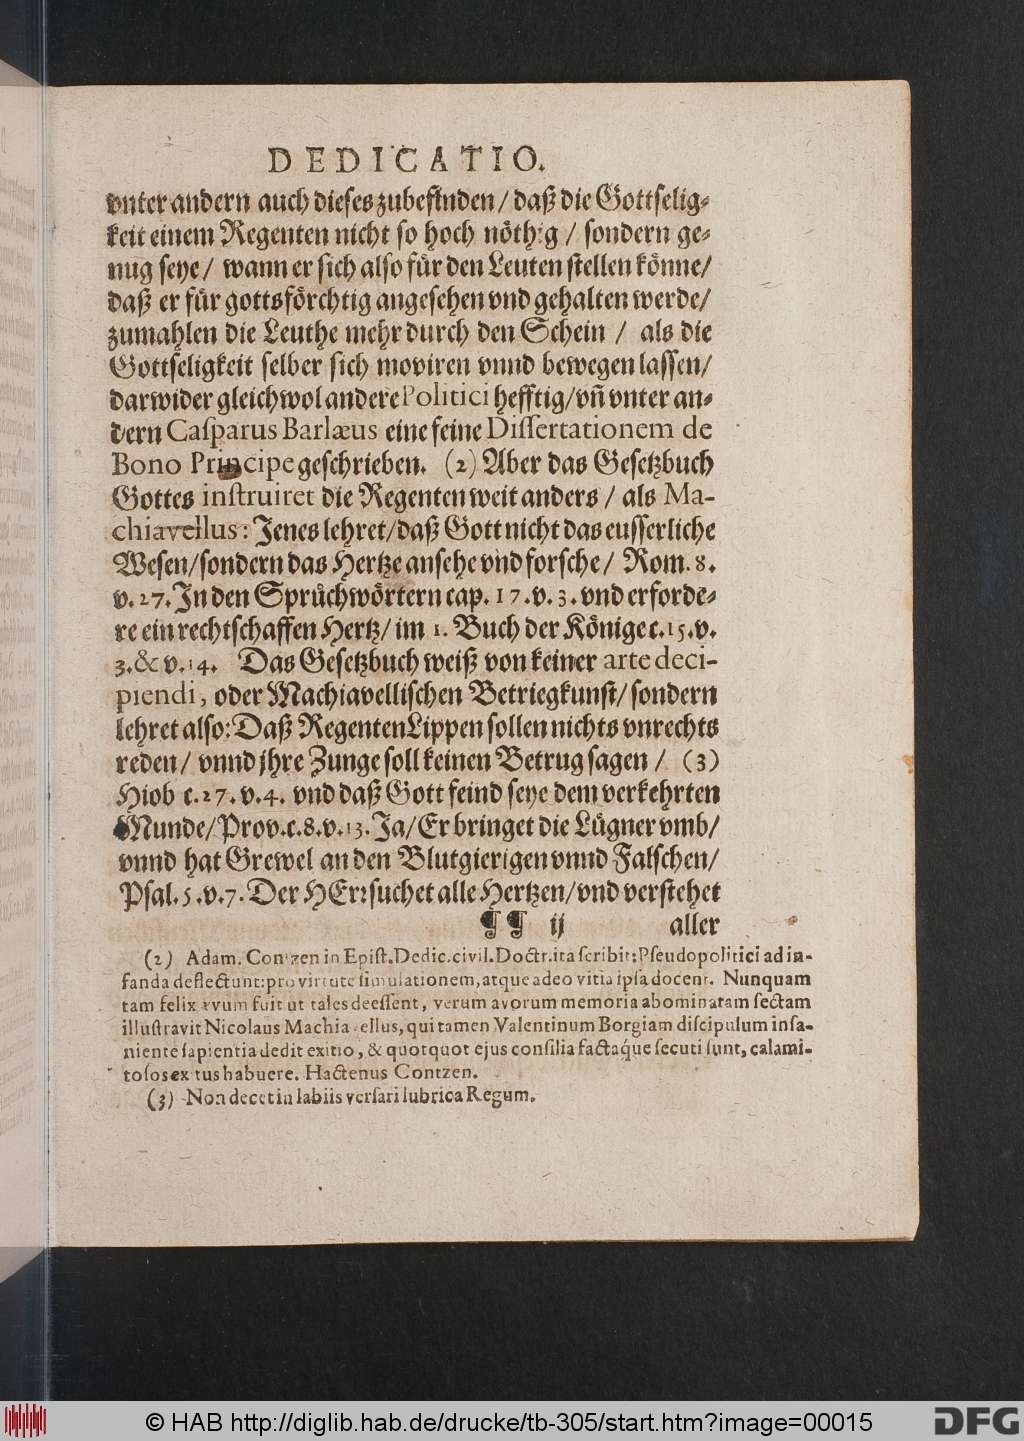 DEDICATIO.
vnter andern auch dieses zubefinden / daß die Gottselig-
keit einem Regenten nicht so hoch nöthig / sondern ge-
nug seye / wann er sich also für den Leuten stellen könne /
daß er für gottsförchtig angesehen vnd gehalten werde /
zumahlen die Leuthe mehr durch den Schein / als die
Gottseligkeit selber sich moviren vnnd bewegen lassen /
darwider gleichwol andere Politici hefftig / vñ vnter an-
dern Casparus Barlæus eine feine Dissertationem de
Bono Principe geschrieben. (2) Aber das Gesetzbuch
Gottes instruiret die Regenten weit anders / als Ma-
chiavellus: Jenes lehret / daß Gott nicht das eusserliche
Wesen / sondern das Hertze ansehe vnd forsche / Rom. 8.
v. 27. In den Sprüchwörtern cap. 17. v. 3. vnd erforde-
re ein rechtschaffen Hertz / im 1. Buch der Könige c. 15. v.
3. & v. 14. Das Gesetzbuch weiß von keiner arte deci-
piendi, oder Machiavellischen Betriegkunst / sondern
lehret also: Daß Regenten Lippen sollen nichts vnrechts
reden / vnnd jhre Zunge soll keinen Betrug sagen / (3)
Hiob c. 27. v. 4. vnd daß Gott feind seye dem verkehrten
Munde / Prov. c. 8. v. 13. Ja / Er bringet die Lügner vmb /
vnnd hat Grewel an den Blutgierigen vnnd Falschen /
Psal. 5. v. 7. Der HErr suchet alle Hertzen / vnd verstehet
¶¶ ij aller
(2) Adam. Contzen in Epist. Dedic. civil. Doctr. ita scribit: Pseudopolitici ad in-
fanda deflectunt: pro virtute simulationem, atque adeo vitia ipsa docent. Nunquam
tam felix ævum fuit ut tales deessent, verum avorum memoria abominatam sectam
illustravit Nicolaus Machiavellus, qui tamen Valentinum Borgiam discipulum insa-
niente sapientia dedit exitio, & quotquot ejus consilia factaq́ue secuti sunt, calami-
tosos exitus habuere. Hactenus Contzen.
(3) Non decet in labiis versari lubrica Regum.
© HAB http://diglib.hab.de/drucke/tb-305/start.htm?image=00015
DFG